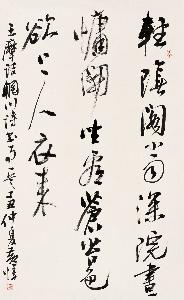 輕陰閣小雨深院晝
慵開坐看蒼苔色
欲上人衣來
王摩詰輞川詩 丑仲夏黃惇